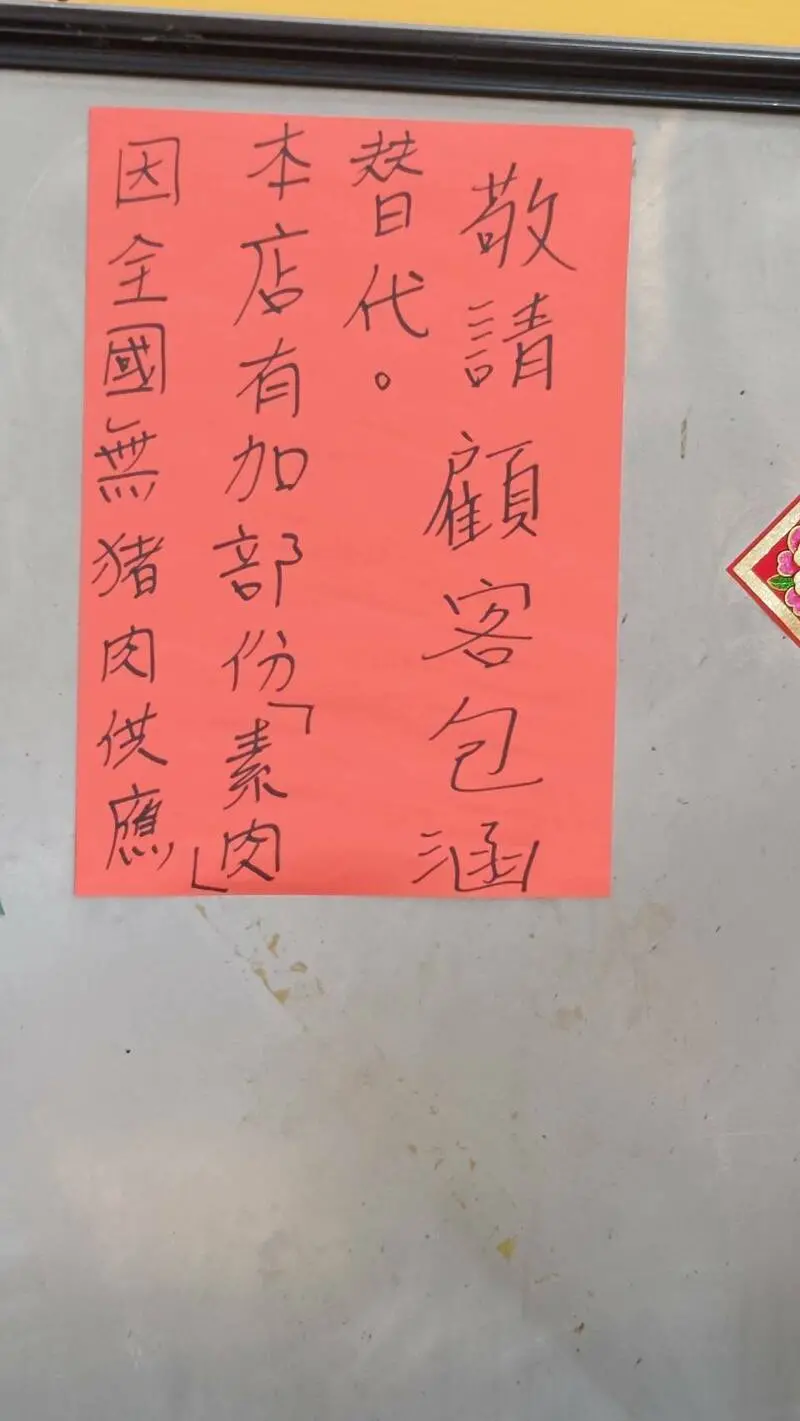 因全國無豬肉供應
本店有加部份「素肉」
替代。
敬請顧客包涵